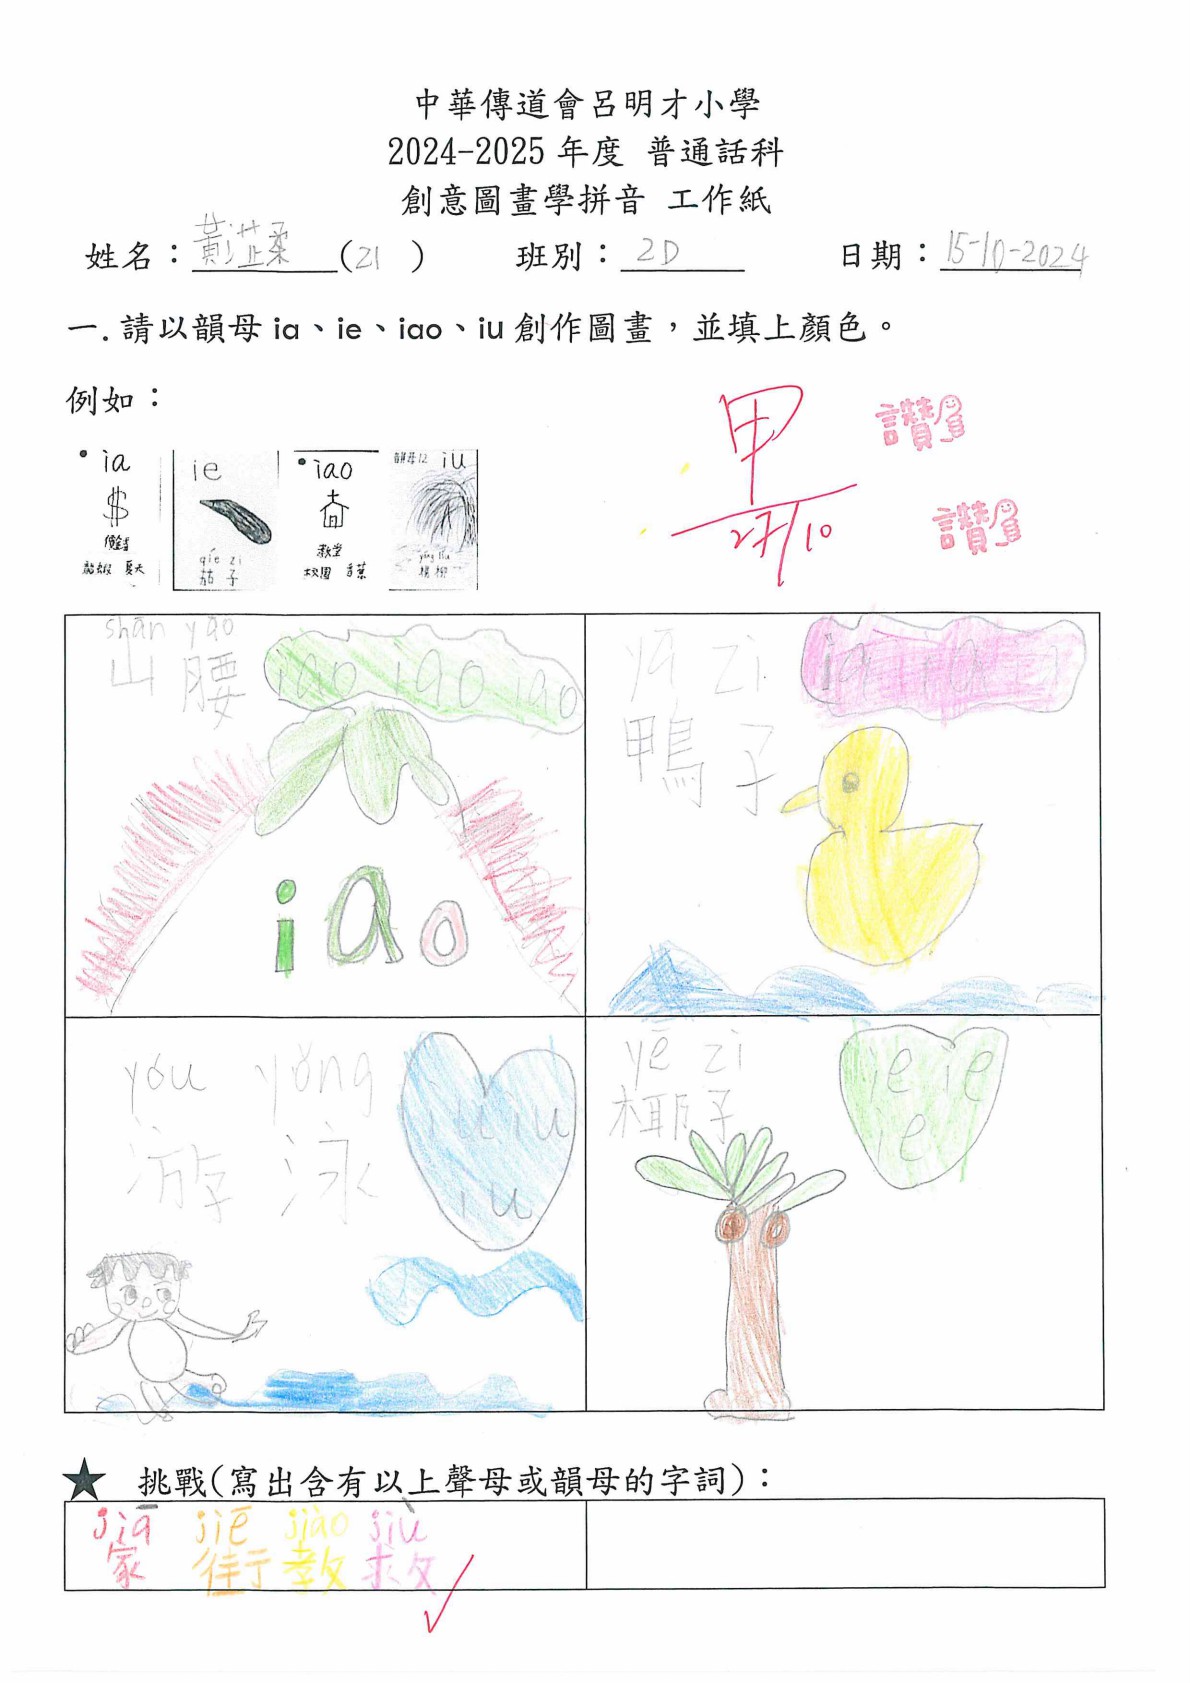 中華傳道會呂明才小學
2024-2025 年度 普通話科
創意圖畫學拼音 工作紙
姓名：黃芷柔 (21) 班別：2D 日期：15-10-2024
一. 請以韻母 ia、ie、iao、iu 創作圖畫，並填上顏色。
例如：
甲
27/10
讚
讚
ia
ie
qié zi
茄子
iao
教堂
校園
iu
shān yāo
山腰
iao iao iao
iao
yā zi
鴨子
ia ia ia
yóu yǒng
游泳
iu iu
iu
yē zi
椰子
ie ie
ie
★ 挑戰(寫出含有以上聲母或韻母的字詞)：
jiā jiē jiào jiù
家 街 教 救